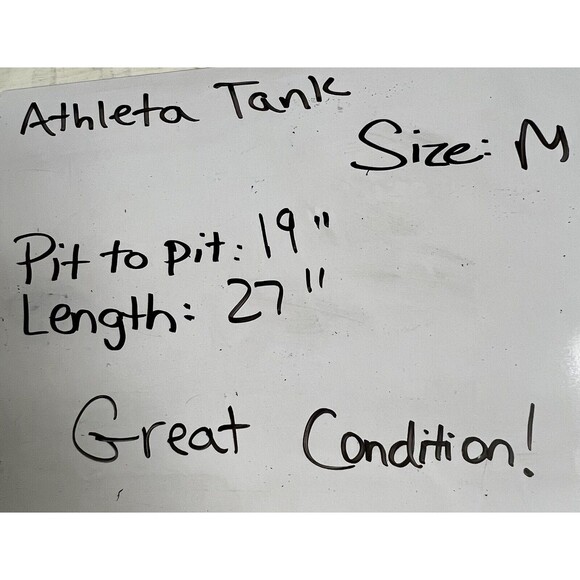 Athleta Tank
Size: M
Pit to pit: 19"
Length: 27"
Great Condition!